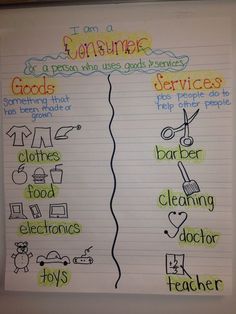 I am a
Consumer
or a person who uses goods & services
Goods
Something that
has been made or
grown.
clothes
food
electronics
toys
Services
jobs people do to
help other people
barber
cleaning
doctor
teacher